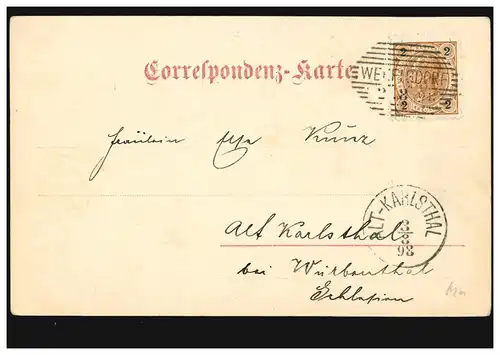 Correspondenz-Karte
2 2
2 2
Fräulein Else Kunz
Alt Karlsthal
bei Würbenthal
Schlesien
ALT-KARLSTHAL
3
8
98